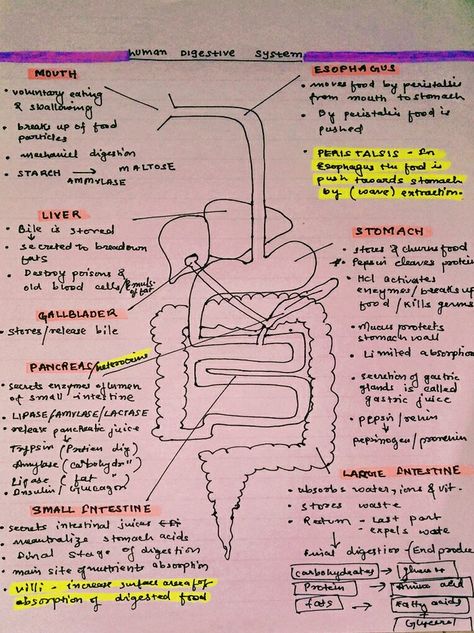 human Digestive System
MOUTH
• voluntary eating
& swallowing
• breaks up of food
particles
• mechanical digestion
• STARCH → MALTOSE
AMMYLASE
ESOPHAGUS
• moves food by peristalsis
from mouth to stomach
• By peristalsis food is
pushed
• PERISTALSIS - In
Esophagus the food is
push towards stomach
by (wave) extraction.
LIVER
• Bile is stored
• secreted to breakdown
fats
• Destroy poisons &
old blood cells/Emuls.
of fat
GALLBLADER
• stores/release bile
STOMACH
• stores & churns food
• Pepsin cleaves protein
• Hcl activates
enzymes/breaks up
food/kills germs
• Mucus protects
stomach wall
• Limited absorption
• secretion of gastric
glands is called
gastric juice
• pepsin/renin
↓
pepsinogen/prorenin
PANCREAS/heterocrine
• secrets enzymes of lumen
of small intestine
• LIPASE/AMYLASE/LACTASE
• release pancreatic juice
↓
Trypsin (Protien dig)
Amylase (carbohydrn)
Lipase ( fat " )
• Insulin/Glucagon
SMALL INTESTINE
• secrets intestinal juices
• neutralize stomach acids
• Final stage of digestion
• main site of nutrients absorption
• villi - increase surface area for
absorption of digested food
LARGE INTESTINE
• absorbs water, ions & vit.
• stores waste
• Rectum - last part
- expels waste
Final digestion (End produc
carbohydrates → glucose
Protein → Amino acid
fats → Fatty acids
→ Glycerol